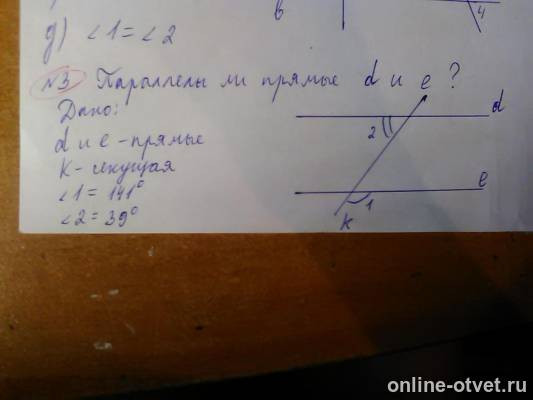 в
4
д) ∠1 = ∠2
№3 Параллелы ли прямые d и e ?
Дано:
d и e - прямые
k - секущая
∠1 = 141°
∠2 = 39°
d
2
e
1
k
online-otvet.ru